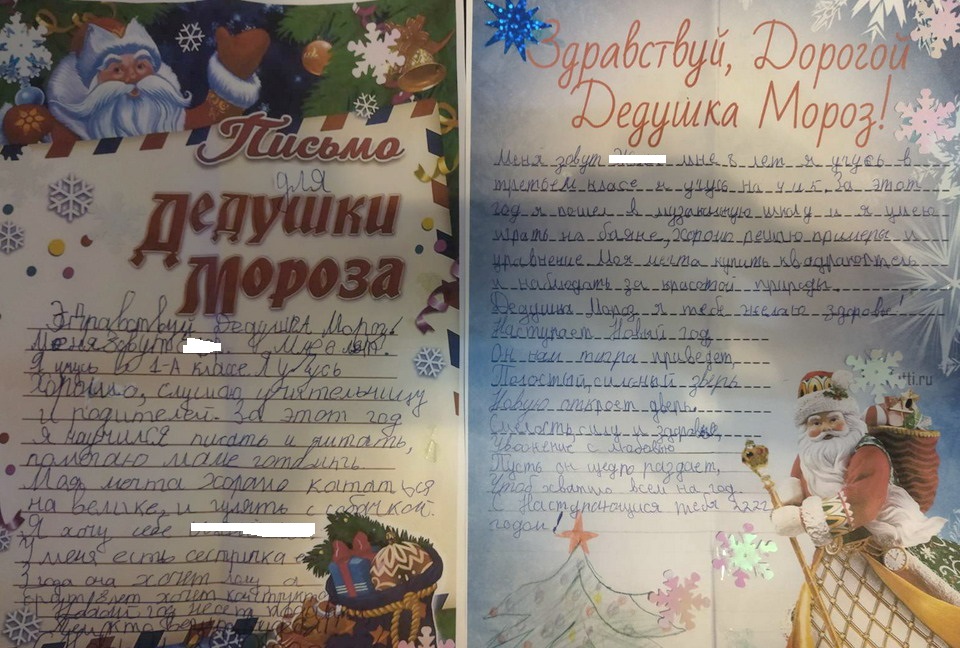 Письмо
для
Дедушки
Мороза
Здравствуй Дедушка Мороз!
Меня зовут
Я учусь во 1-А классе Я учусь
Хорошо, слушаю учительницу
и родителей. За этот год
я научился писать и читать,
помогаю маме готовить.
Моя мечта хорошо кататься
на велике, и гулять с собачкой.
Я хочу себе
У меня есть сестричка
3 года она хочет
хочет
Новый год
Здравствуй, Дорогой
Дедушка Мороз!
Меня зовут мне 8 лет я учусь в
третьем класе я учусь на За этот
год я пошел в музакнную школу и я умею
играть на баяне, хорошо решаю примеры и
уравнение Моя мечта купить квадракоптель
и наблюдать за красотой природы.
Дедушка Мороз я тебе желаю здровя!
Наступает Новый год
Он нам тигра приведет,
Полостый, сильный зверь
Новую откроет дверь.
Смелость, силу и здоровье,
Уважение с любовью
Пусть он щедро раздает,
Чтоб хватило всем на год
С Наступающися тебя 2222
годом!
ti.ru